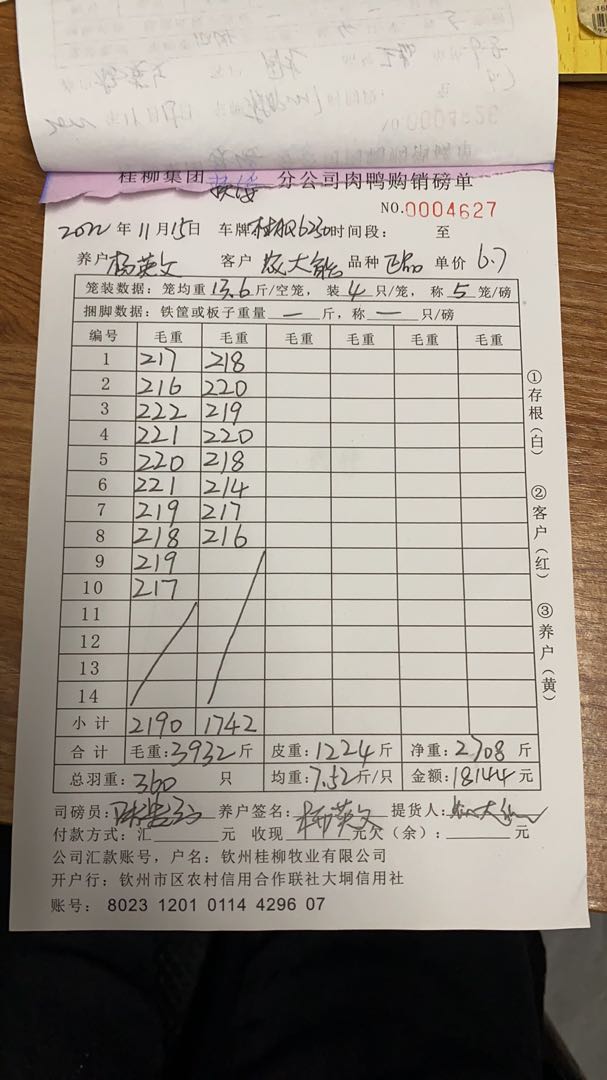 桂柳集团 分公司肉鸭购销磅单
NO.0004627
2022 年 11 月 15 日 车牌 6230 时间段: 至
养户 杨英文 客户 农大能 品种 正品 单价 6.7
笼装数据: 笼均重 13.6 斤/空笼, 装 4 只/笼, 称 5 笼/磅
捆脚数据: 铁筐或板子重量 — 斤, 称 — 只/磅
编号 毛重 毛重 毛重 毛重 毛重 毛重
1 217 218
2 216 220
3 222 219
4 221 220
5 220 218
6 221 214
7 219 217
8 218 216
9 219
10 217
11
12
13
14
小计 2190 1742
合计 毛重: 3932 斤 皮重: 1224 斤 净重: 2708 斤
总羽重: 360 只 均重: 7.52 斤/只 金额: 18144 元
司磅员: 养户签名: 杨英文 提货人: 农大能
付款方式: 汇 元 收现 元 欠(余): 元
公司汇款账号, 户名: 钦州桂柳牧业有限公司
开户行: 钦州市区农村信用合作联社大垌信用社
账号: 8023 1201 0114 4296 07
①存根(白)
②客户(红)
③养户(黄)